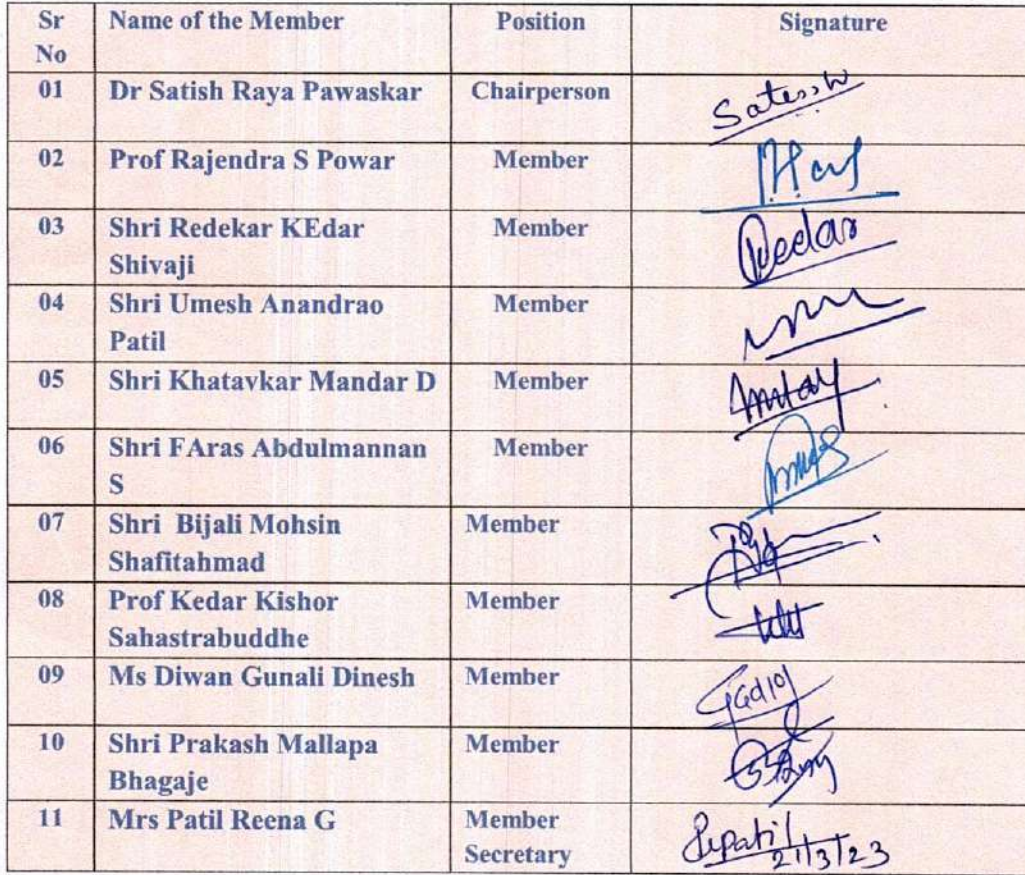 Sr No Name of the Member Position Signature
01 Dr Satish Raya Pawaskar Chairperson
02 Prof Rajendra S Powar Member
03 Shri Redekar KEdar Member
Shivaji
04 Shri Umesh Anandrao Member
Patil
05 Shri Khatavkar Mandar D Member
06 Shri FAras Abdulmannan Member
S
07 Shri Bijali Mohsin Member
Shafitahmad
08 Prof Kedar Kishor Member
Sahastrabuddhe
09 Ms Diwan Gunali Dinesh Member
10 Shri Prakash Mallapa Member
Bhagaje
11 Mrs Patil Reena G Member
Secretary
21/3/23